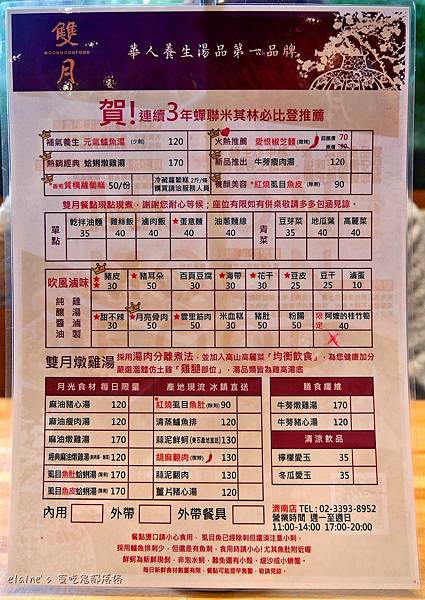 雙月
MOONMOONFOOD
華人養生湯品第一品牌
賀!連續3年蟬聯米其林必比登推薦
補氣養生 元氣鱸魚湯(少刺) 120
火熱推薦 愛恨椒芝麵(微辣) 70
熱銷經典 蛤蜊燉雞湯 170
新品推出 牛蒡瘦肉湯 120
質樸蘿蔔糕 50/份 冷藏蘿蔔糕2斤/條 購買請洽服務人員
養顏美容 *紅燒虱目魚皮(除刺) 90
雙月餐點現點現煮,謝謝您耐心等候;座位有限如有併桌敬請多多包涵見諒。
單點
乾拌油麵 35
雞絲飯 40
滷肉飯 40
★蛋意麵 40
油蔥麵線 40
青菜
豆芽菜 35
地瓜葉 40
高麗菜 40
吹風滷味
純釀醬油
雞湯滷
★豬皮 30
★豬耳朵 50
百頁豆腐 30
★海帶 30
★花干 30
★豆皮 25
豆干 25
滷蛋 10
★甜不辣 30
★月亮骨肉 50
★雲里筋肉 50
米血糕 30
豬肚 50
粉腸 50
限定 阿嬤的桂竹筍 40
雙月燉雞湯 採用湯肉分離煮法,並加入高山高麗菜「均衡飲食」,為您健康加分
嚴選溫體仿土雞「雞腿部位」,湯品類皆為雞高湯底
月光食材 每日限量
麻油豬心湯 120
麻油瘦肉湯 120
麻油燉雞湯 170
經典麻油燉雞湯 220
虱目魚肚蛤蜊湯(除刺) 170
虱目魚皮蛤蜊湯(除刺) 120
產地現流 冰鎮直送
*紅燒虱目魚肚(除刺) 90
清蒸鱸魚排 120
蒜泥鮮蚵(東石產地直送) 130
胡麻翻肉(微辣) 130
蒜泥翻肉 130
薑片豬心湯 120
膳食纖維
牛蒡燉雞湯 170
牛蒡豬心湯 120
清涼飲品
檸檬愛玉 35
冬瓜愛玉 35
內用 外帶 外帶餐具
濟南店 TEL:02-3393-8952
營業時間 週一至週日
11:00-14:00 17:00-20:00
餐點燙口請小心食用,虱目魚已經除刺但還須注意小刺。
採用鱸魚排刺少,但還是有魚刺,食用時請小心!尤其魚肚附近喔
鮮蚵為新鮮現剝,非泡水蚵,難免還有小殼、細沙或小螃蟹。
每日新鮮食材數量有限,餐點可能提早售罄,敬請見諒。
elaine's